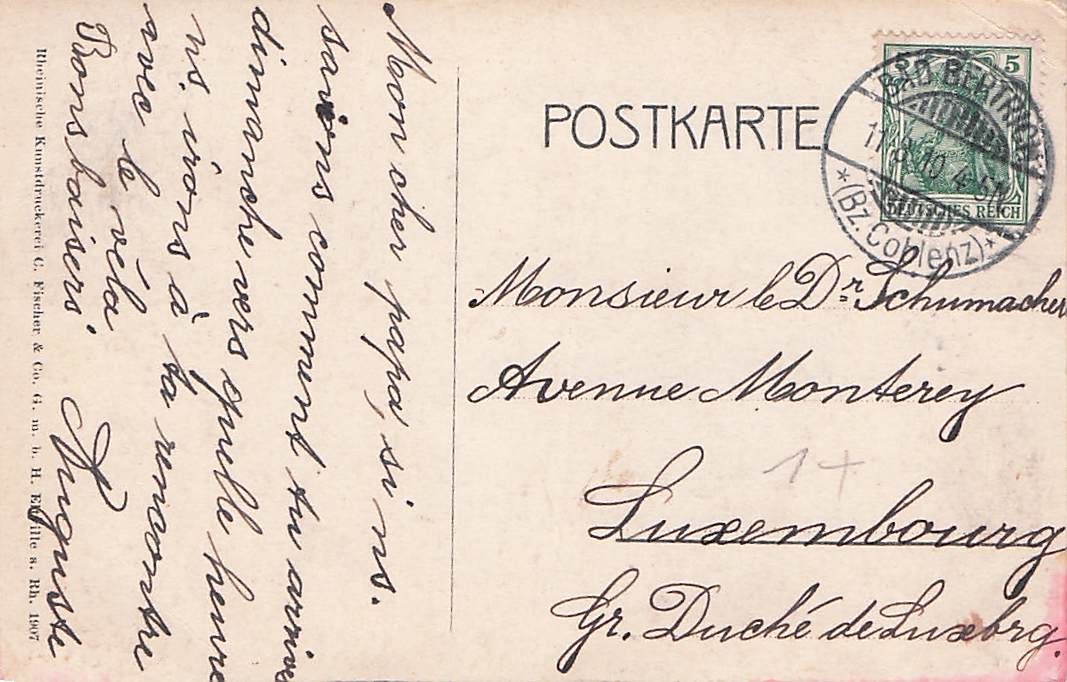 Mon cher papa, si ns.
savions comment tu arrives
dimanche vers quelle heure
ns. irons à ta rencontre
avec le vélo
Bons baisers
Auguste
Rheinische Kunstdruckerei C. Fischer & Co. G. m. b. H. Eltville a. Rh. 1907
POSTKARTE
5
DEUTSCHES REICH
BAD BERTRICH
11.8.10. 4-5N
*(Bz. Coblenz)*
Monsieur le Dr. Schumacher
Avenue Monterey
1+
Luxembourg
Gr. Duché de Luxebrg.